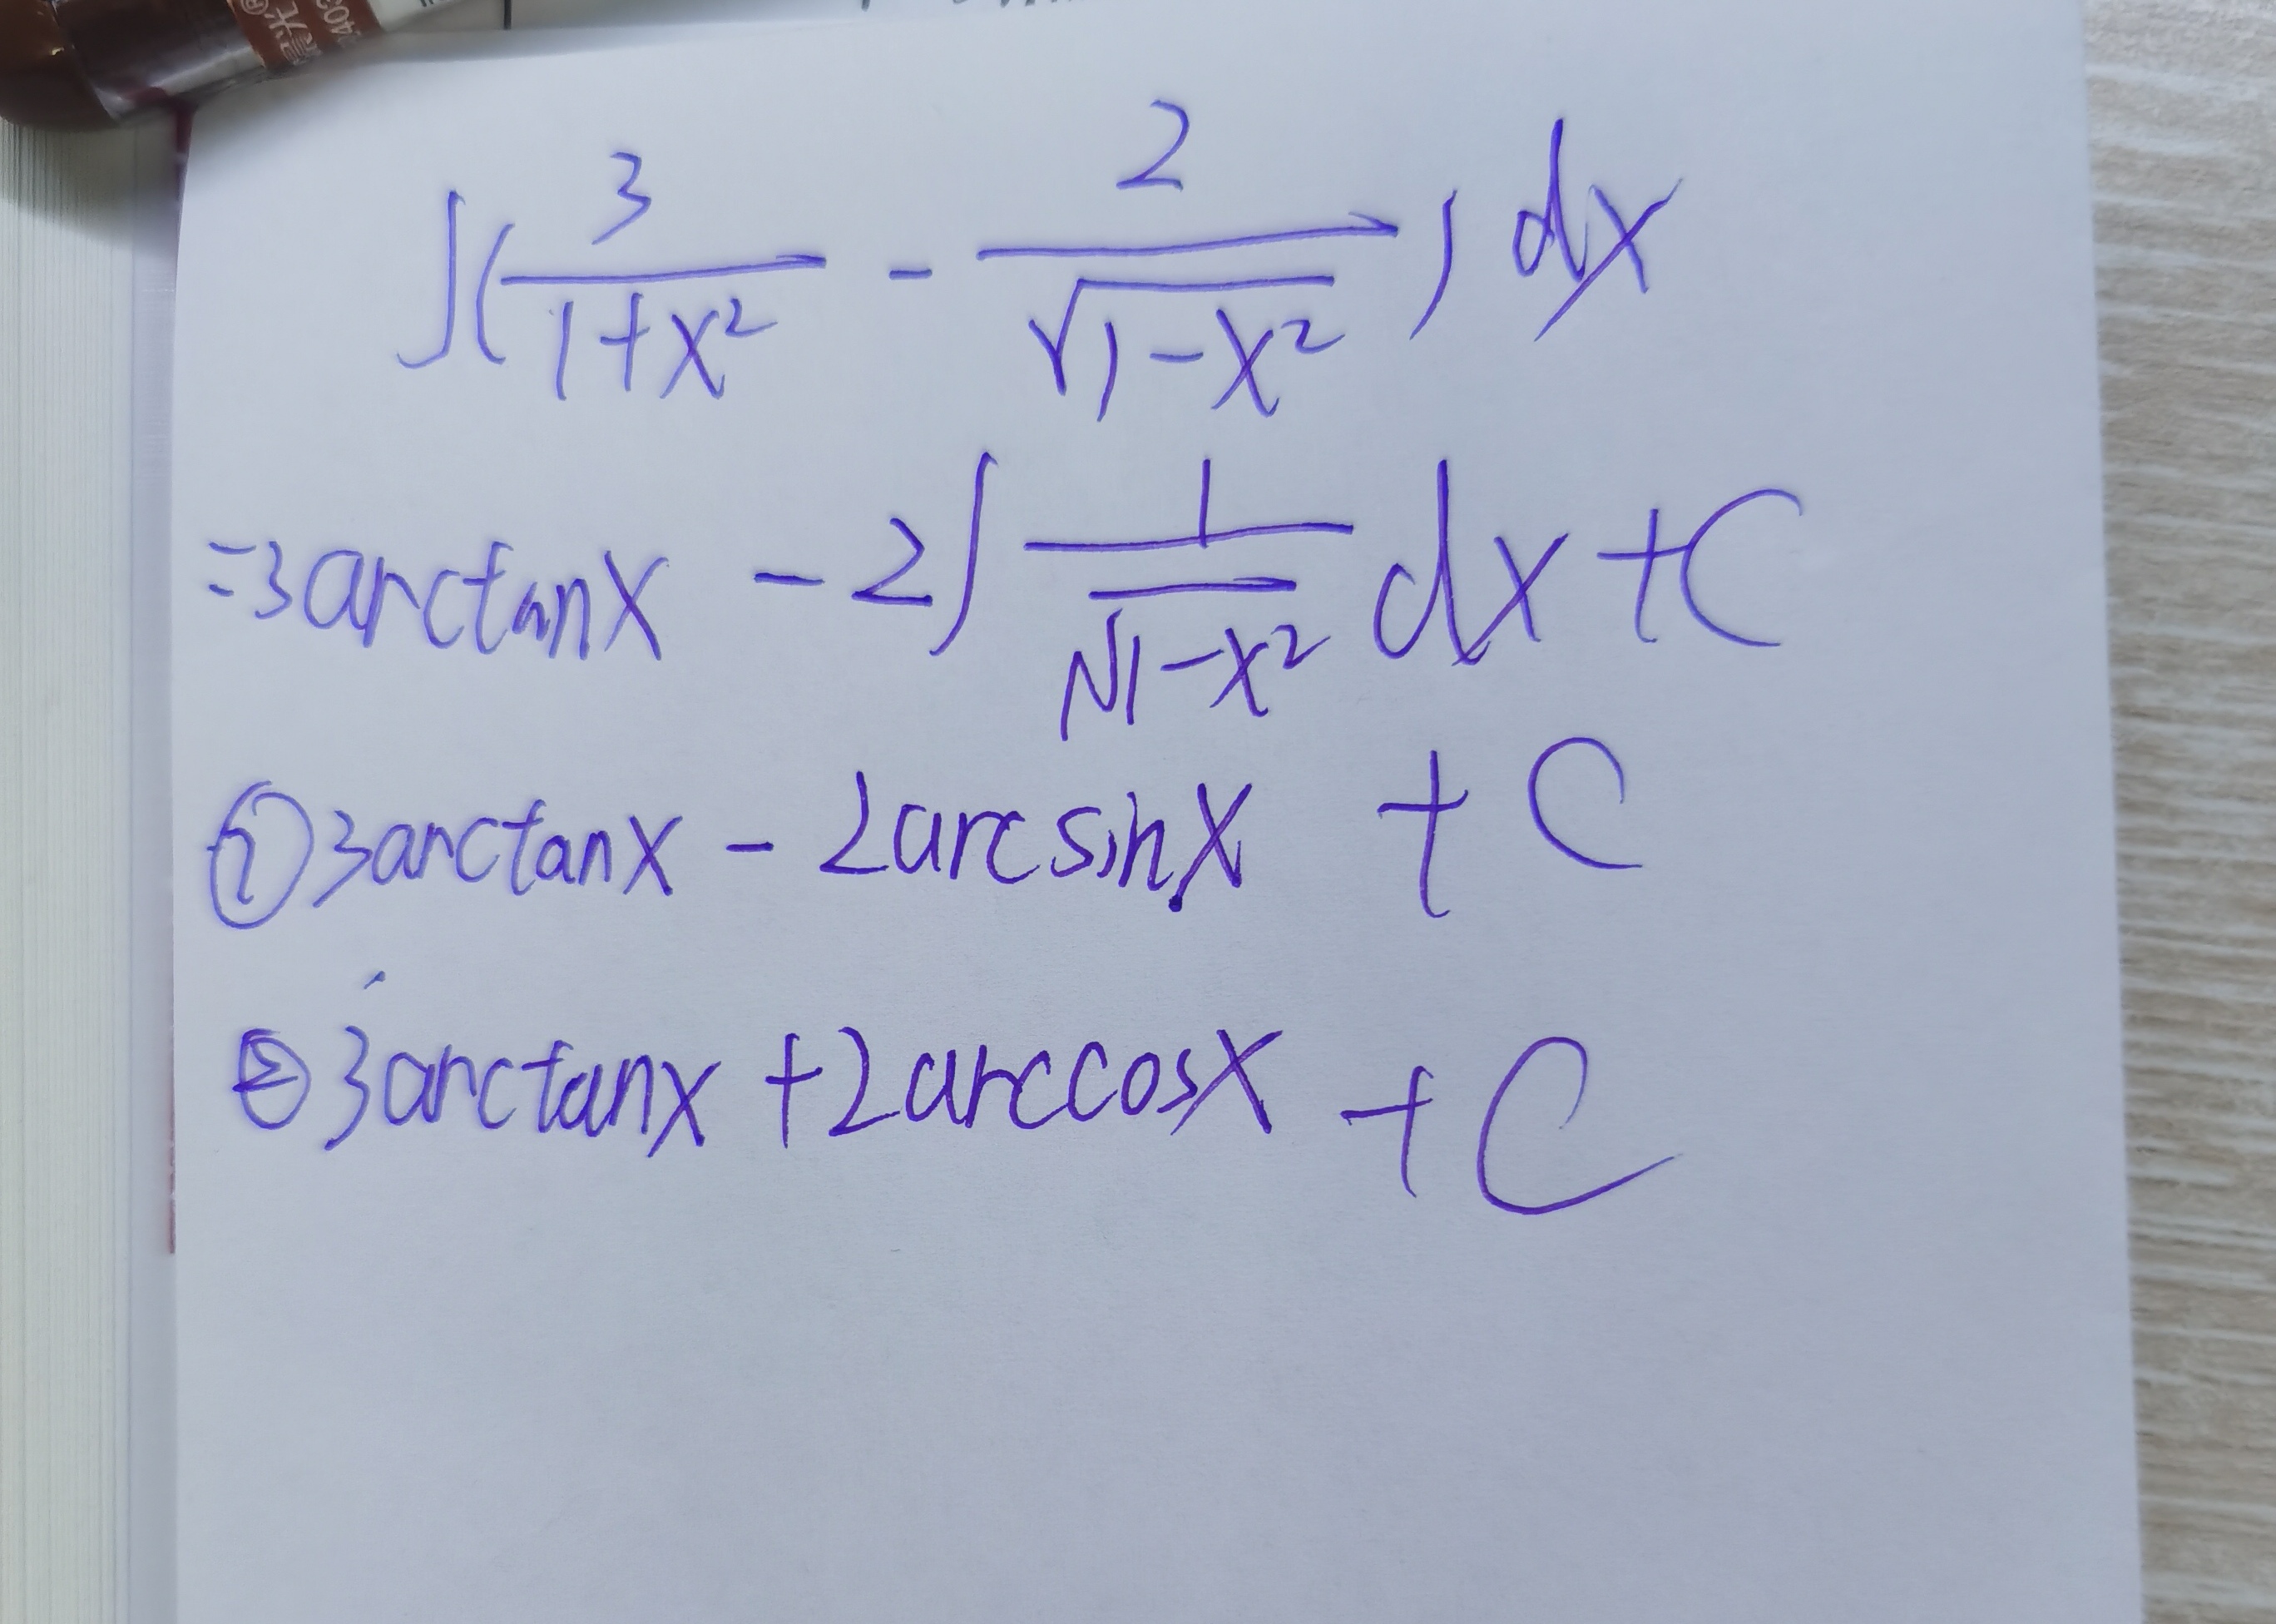 ∫(3/(1+x²) - 2/√(1-x²))dx
=3arctanx - 2∫1/√(1-x²) dx + C
①3arctanx - 2arcsinx + C
②3arctanx + 2arccosx + C